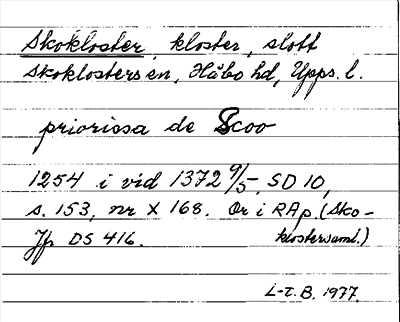 Skokloster, kloster, slott
Skoklosters sn, Håbo hd, Upps. l.
priorissa de Scoo
1254 i vid 1372 9/5, SD 10,
s. 153, nr X 168. Or i RAp. (Sko-
Jfr DS 416. klostersaml.)
L-E. B. 1977.